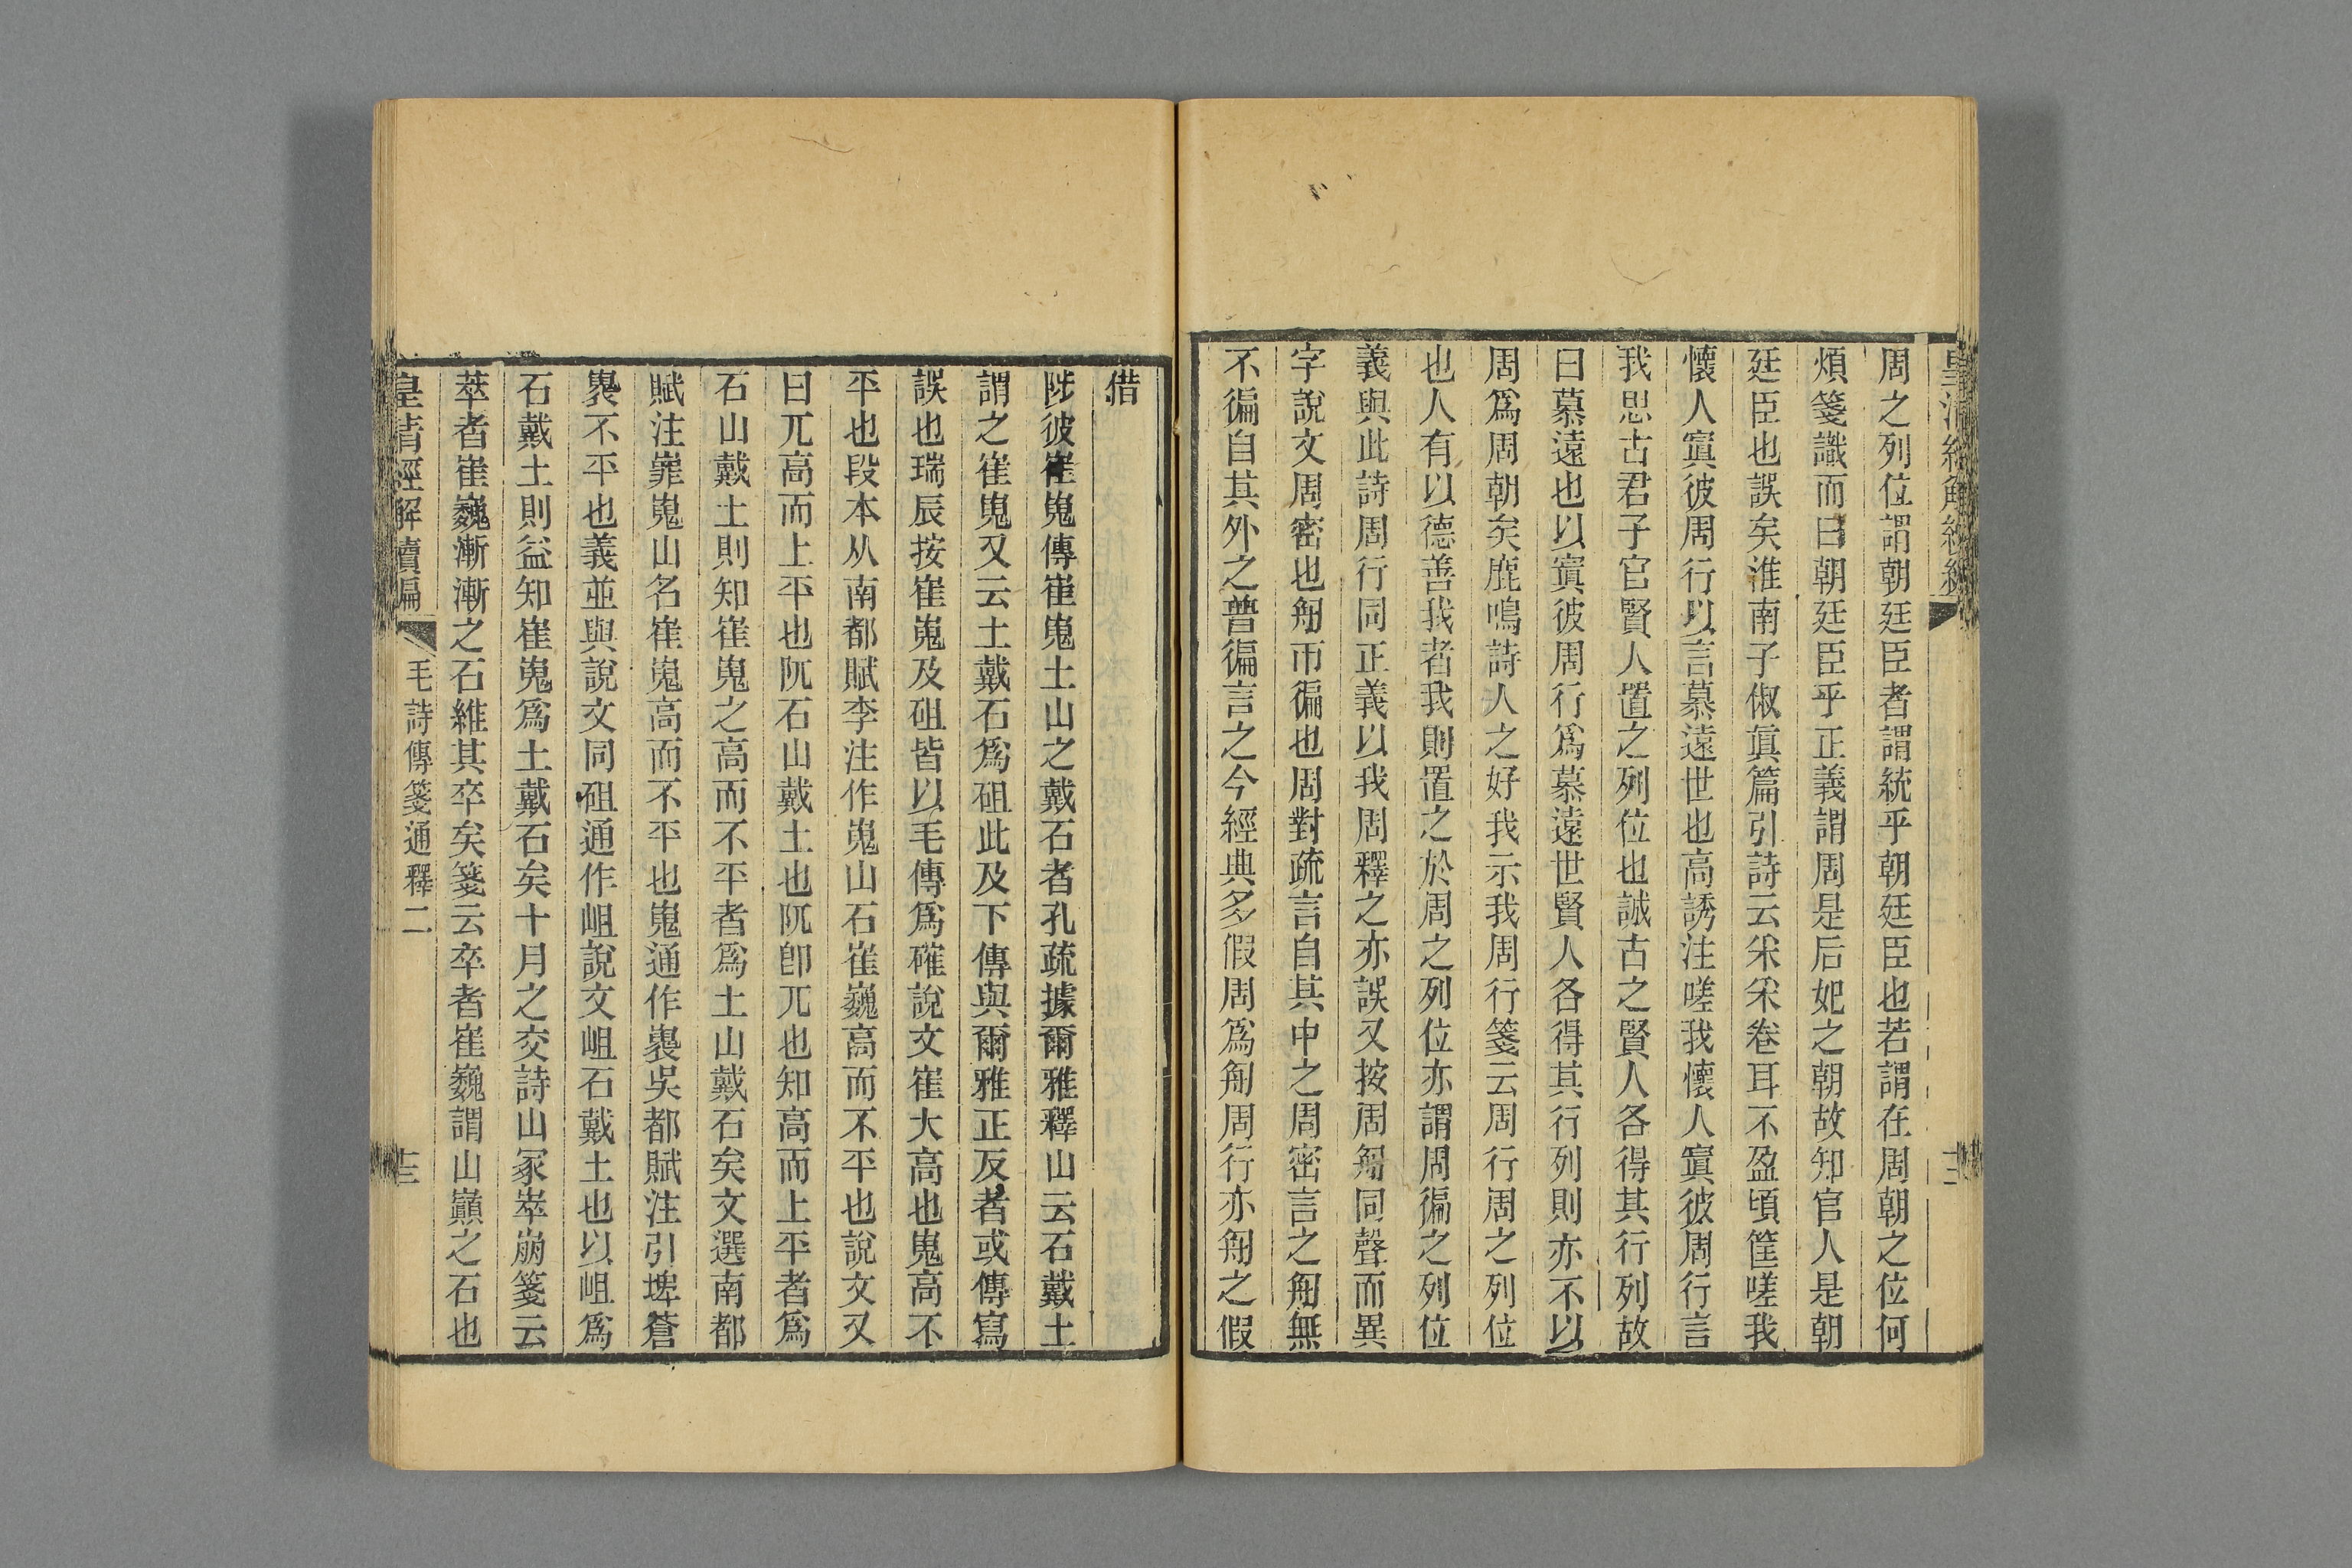 周之列位謂朝廷臣者謂統乎朝廷臣也若謂在周朝之位何
煩箋識而曰朝廷臣乎正義謂周是后妃之朝故知官人是朝
廷臣也誤矣淮南子俶眞篇引詩云采采卷耳不盈頃筐嗟我
懷人寘彼周行以言慕遠世也高誘注嗟我懷人寘彼周行言
我思古君子官賢人置之列位也誠古之賢人各得其行列故
曰慕遠也以寘彼周行爲慕遠世賢人各得其行列則亦不以
周爲周朝矣鹿鳴詩人之好我示我周行箋云周行周之列位
也人有以德善我者我則置之於周之列位亦謂周徧之列位
義與此詩周行同正義以我周釋之亦誤又按周匊同聲而異
字說文周密也匊帀徧也周對疏言自其中之周密言之匊無
不徧自其外之普徧言之今經典多假周爲匊周行亦匊之假
借
陟彼崔嵬傳崔嵬土山之戴石者孔疏據爾雅釋山云石戴土
謂之崔嵬又云土戴石爲砠此及下傳與爾雅正反者或傳寫
誤也瑞辰按崔嵬及砠皆以毛傳爲確說文崔大高也嵬高不
平也段本从南都賦李注作嵬山石崔巍高而不平也說文又
曰兀高而上平也阢石山戴土也阢卽兀也知高而上平者爲
石山戴土則知崔嵬之高而不平者爲土山戴石矣文選南都
賦注崔嵬山名崔嵬高而不平也嵬通作㠢吳都賦注引埤蒼
㠢不平也義並與說文同砠通作岨說文岨石戴土也以岨爲
石戴土則益知崔嵬爲土戴石矣十月之交詩山冢崒崩箋云
萃者崔巍漸漸之石維其卒矣箋云卒者崔巍謂山巔之石也
皇清經解續編
毛詩傳箋通釋二
十三